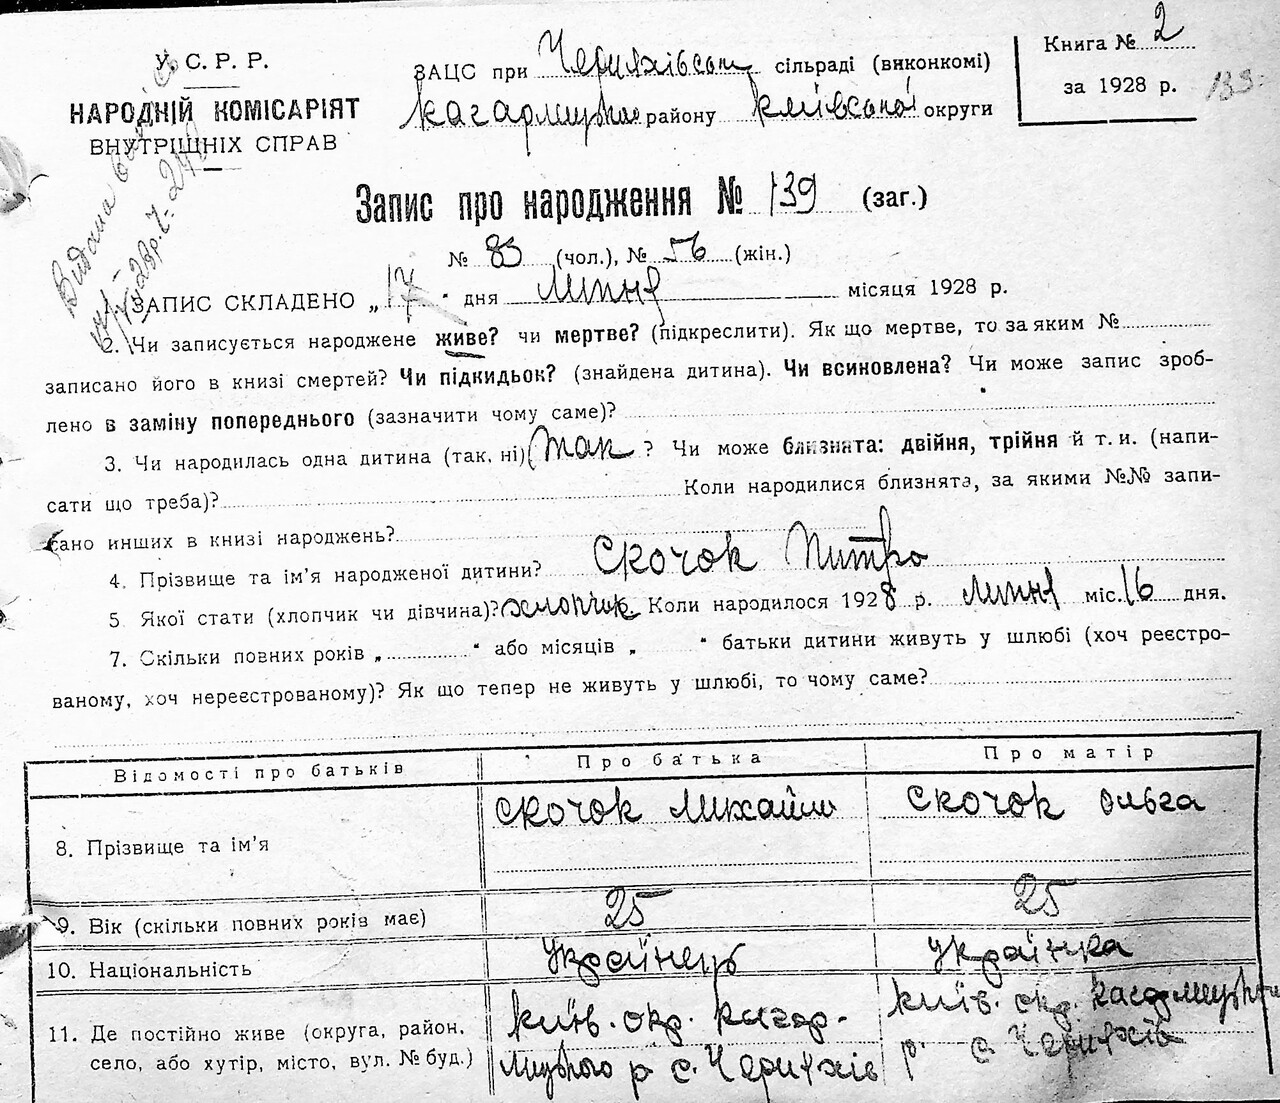 У.С.Р.Р.
НАРОДНІЙ КОМІСАРІЯТ
ВНУТРІШНІХ СПРАВ
ЗАЦС при Черняхівськ сільраді (виконкомі)
Кагарлицьк району Київської округи
Книга № 2
за 1928 р.
139
Видана
Запис про народження № 139 (заг.)
№ 83 (чол.), № 56 (жін.)
ЗАПИС СКЛАДЕНО „ 17 " дня липня місяця 1928 р.
2. Чи записується народжене живе? чи мертве? (підкреслити). Як що мертве, то за яким №
записано його в книзі смертей? Чи підкидьок? (знайдена дитина). Чи всиновлена? Чи може запис зроб-
лено в заміну попереднього (зазначити чому саме)?
3. Чи народилась одна дитина (так, ні) (так ? Чи може близнята: двійня, трійня й т. и. (напи-
сати що треба)? Коли народилися близнята, за якими №№ запи-
сано инших в книзі народжень?
4. Прізвище та ім'я народженої дитини? Скочок Питро
5 Якої стати (хлопчик чи дівчина)? хлопчик. Коли народилося 1928 р. липня міс. 16 дня.
7. Скільки повних років „ " або місяців „ " батьки дитини живуть у шлюбі (хоч реєстро-
ваному, хоч нереєстрованому)? Як що тепер не живуть у шлюбі, то чому саме?
Відомості про батьків Про батька Про матір
8. Прізвище та ім'я Скочок Михайло Скочок Ольга
9. Вік (скільки повних років має) 25 25
10. Національність Українець Українка
11. Де постійно живе (округа, район, Київ. окр. Кагар- Київ. окр. Кагарлицьк
село, або хутір, місто, вул. № буд.) лицького р с. Черняхів р. с. Черняхів